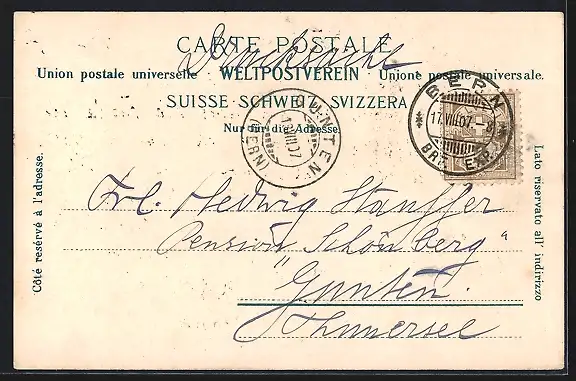 CARTE POSTALE
Drucksache
Union postale universelle WELTPOSTVEREIN Unione postale universale.
SUISSE SCHWEIZ SVIZZERA
Nur für die Adresse.
BERN
17.VIII.07.
BRF. EXP.
GUNTEN
VIII.07
(BERN)
Côté resérvé à l'adresse.
Lato riservato all' indirizzo
Frl. Hedwig Stauffer
Pension „Schönberg“
Gunten.
Thunersee